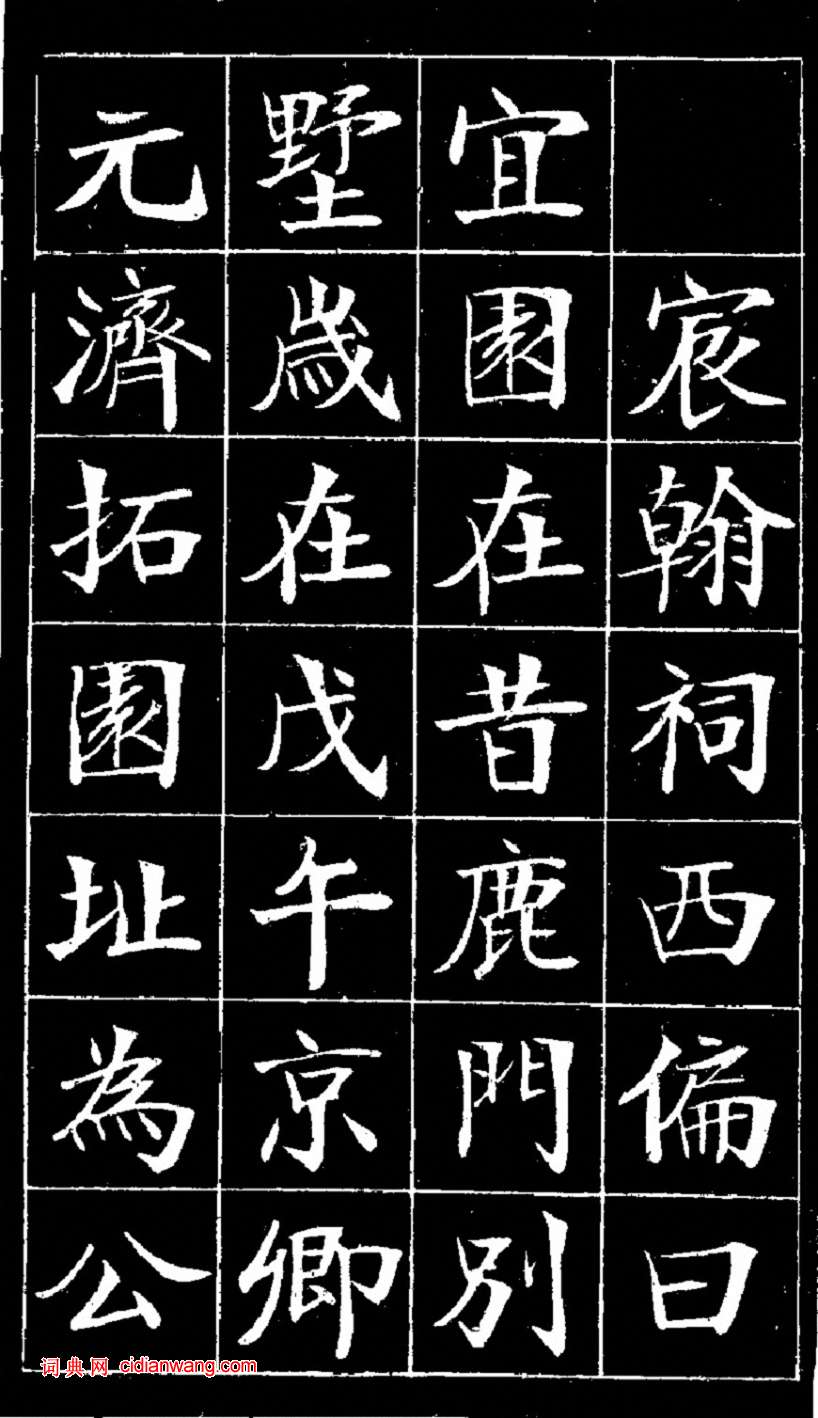 宸翰祠西偏曰
宜園在昔鹿門別
墅歲在戊午京卿
元濟拓園址為公
词典网 cidianwang.com